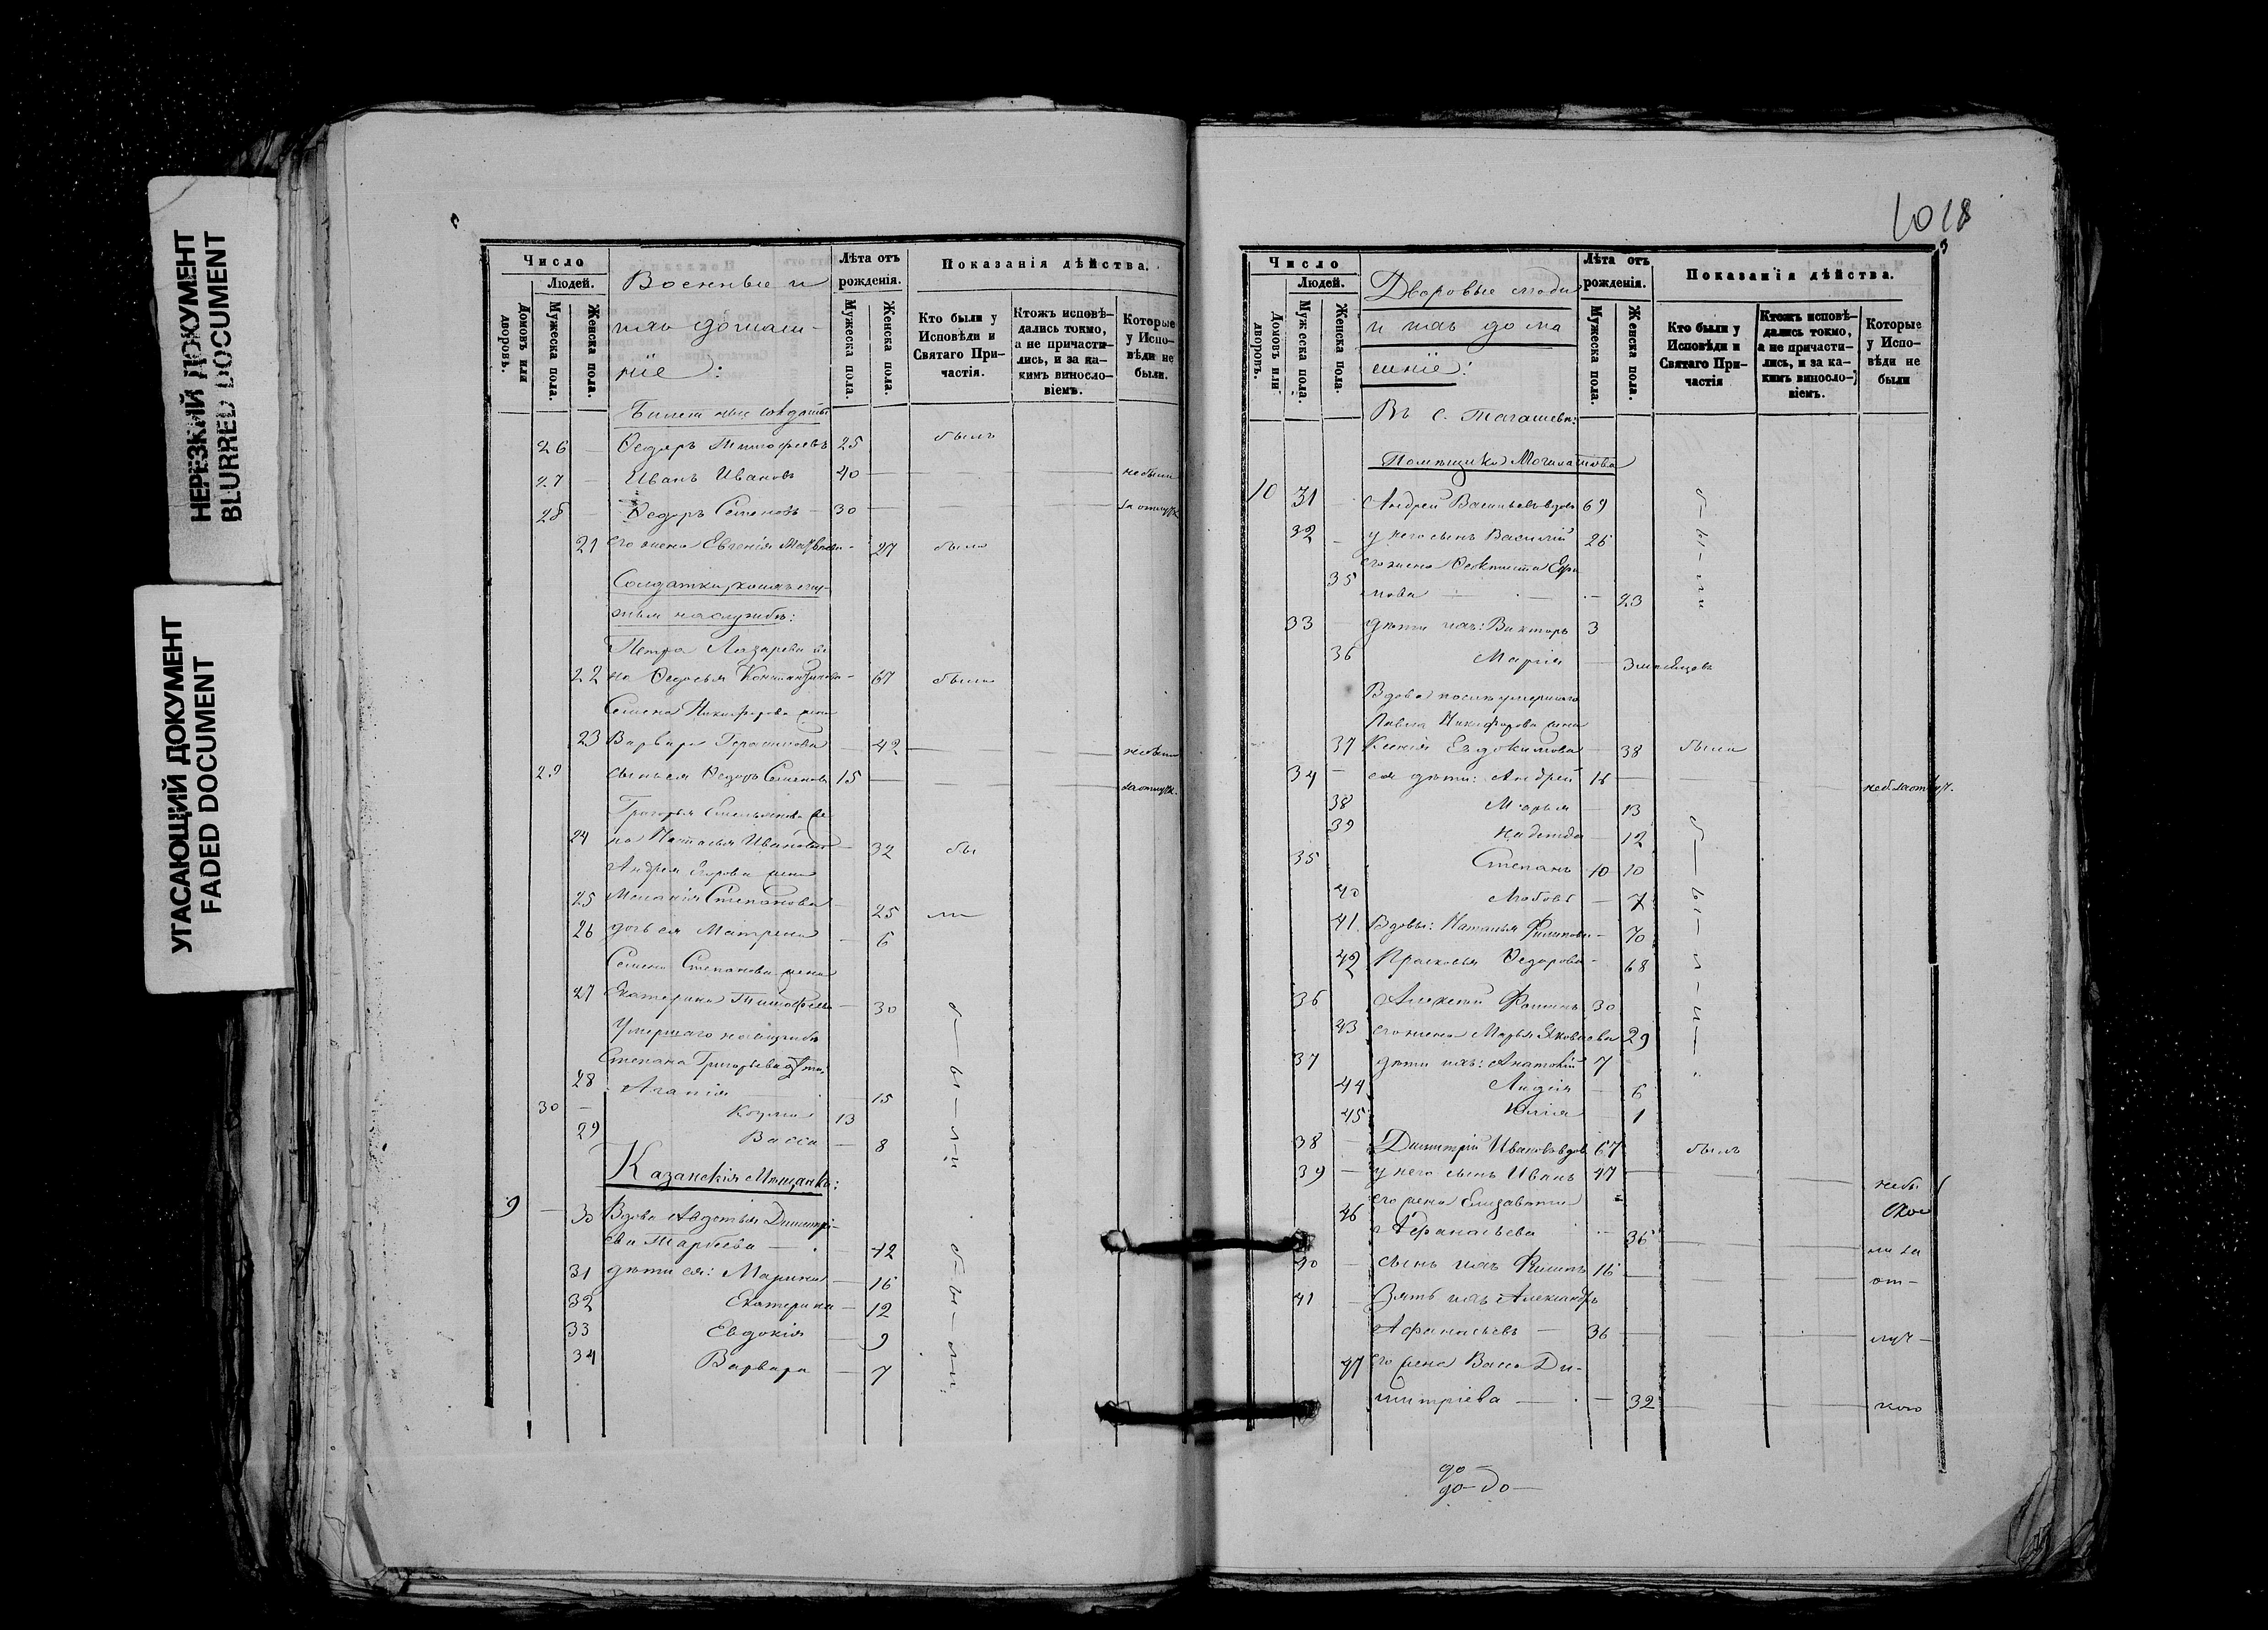 НЕРЕЗКИЙ ДОКУМЕНТ
BLURRED DOCUMENT
УГАСАЮЩИЙ ДОКУМЕНТ
FADED DOCUMENT
Число
Людей.
Домовъ или дворовъ.
Мужеска пола.
Женска пола.
Военные и
ихъ домаш-
ніе:
Лѣта отъ рожденія.
Мужеска пола.
Женска пола.
Показанія дѣйства.
Кто были у Исповѣди и Святаго При-частія.
Ктожъ исповѣ-дались токмо, а не причасти-лись, и за ка-кимъ винословіемъ.
Которые у Испо-вѣди не были.
Билетные солдаты
26 — Ѳедоръ Тимофеевъ 25 былъ
27 — Иванъ Ивановъ 40 — не были
28 — Ѳедоръ Семеновъ — 30 — за отлуч.
21 его жена Евгенія — 27 была
Солдатки,
на службѣ:
Петра Лазарева же
22 на Ѳедосья Константинова — 67 была
Семена Никифорова жена
23 Варвара Герасимова — 42 —
29 сынъ ея Ѳедоръ Семеновъ 15 — за отлуч.
Григорья Емельянова же
24 на Наталья Иванова — 32 бы
Андрея Егорова жена
25 Меланія Степанова — 25 ли
26 дочь ея Матрена — 6
Семена Степанова жена
27 Екатерина Тимофеева — 30
Умершаго на службѣ
Степана Григорьева дѣти:
28 Агапія — 15 б—ы—л—и
30 — Козма 13
29 Васса — 8
Казанскія Мѣщанки:
9 — 30 Вдова Авдотья Димитрі-
ева — 42
31 дѣти ея: Марина — 16
32 Екатерина — 12 б—ы—л—и
33 Евдокія — 9
34 Варвара — 7
1018
Число
Людей.
Домовъ или дворовъ.
Мужеска пола.
Женска пола.
Дворовые люди
и ихъ дома
шніе:
Лѣта отъ рожденія.
Мужеска пола.
Женска пола.
Показанія дѣйства.
Кто были у Исповѣди и Святаго При-частія
Ктожъ исповѣ-дались токмо, а не причасти-лись, и за ка-кимъ винослo-віемъ.
Которые у Испо-вѣди не были
Въ с.
Помѣщика
10 31 Андрей Васильевъ вдовъ 69
32 — у него сынъ Василій 26 б—ы—л—и
35 его жена Ѳеоктиста Ефи
мова — 23
33 — дѣти ихъ: Викторъ 3
36 Марія — 3 мѣсяцовъ
Вдова послѣ умершаго
Павла Никифорова жена
37 Ксенія Евдокимова — 38 была
34 — ея дѣти: Андрей 16 —
38 Марья — 13
39 Надежда — 12
35 Степанъ 10 10
40 Любовь — 7 б—ы—л—и—
41 Вдовы: Наталья Филипова — 70
42 Прасковья Ѳедорова — 68
36 Алексѣй Фоминъ 30
43 его жена Марья Яковлева 29
37 дѣти ихъ: Анатолій 7
44 Лидія — 6
45 Юлія — 1
38 — Димитрій Ивановъ вдов. 67 былъ
39 — у него сынъ Иванъ 47 — не бы
46 его жена Елизавета
Афанасьева — 36 — ли за
40 — сынъ ихъ Филипъ 16 — от-
41 — Зять ихъ Александръ
Афанасьевъ — 36 — луч-
47 его жена Васса Ди-
митріева — 32 — кою
до
до-До-